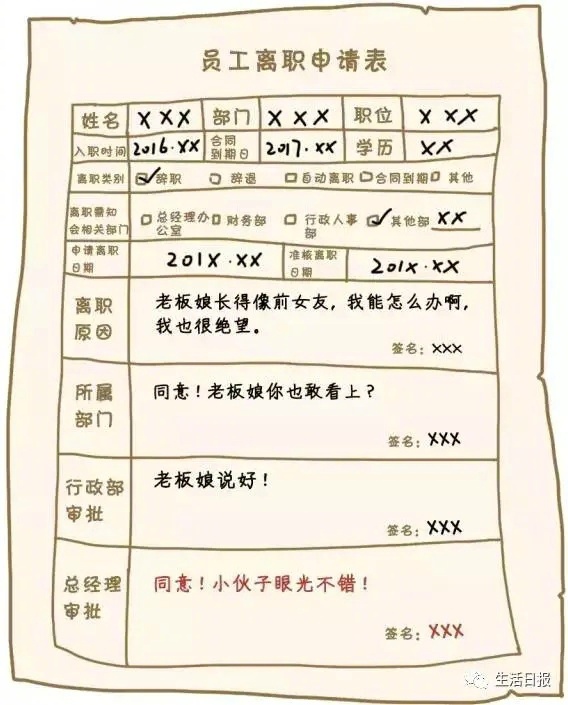 员工离职申请表
姓名 XXX 部门 XXX 职位 XXX
入职时间 2016.XX 合同到期日 2017.XX 学历 XX
离职类别 辞职 辞退 自动离职 合同到期 其他
离职需知会相关部门 总经理办公室 财务部 行政人事部 其他部 XX
申请离职日期 201X.XX 准核离职日期 201X.XX
离职原因
老板娘长得像前女友，我能怎么办啊，
我也很绝望。
签名：XXX
所属部门
同意！老板娘你也敢看上？
签名：XXX
行政部审批
老板娘说好！
签名：XXX
总经理审批
同意！小伙子眼光不错！
签名：XXX
生活日报